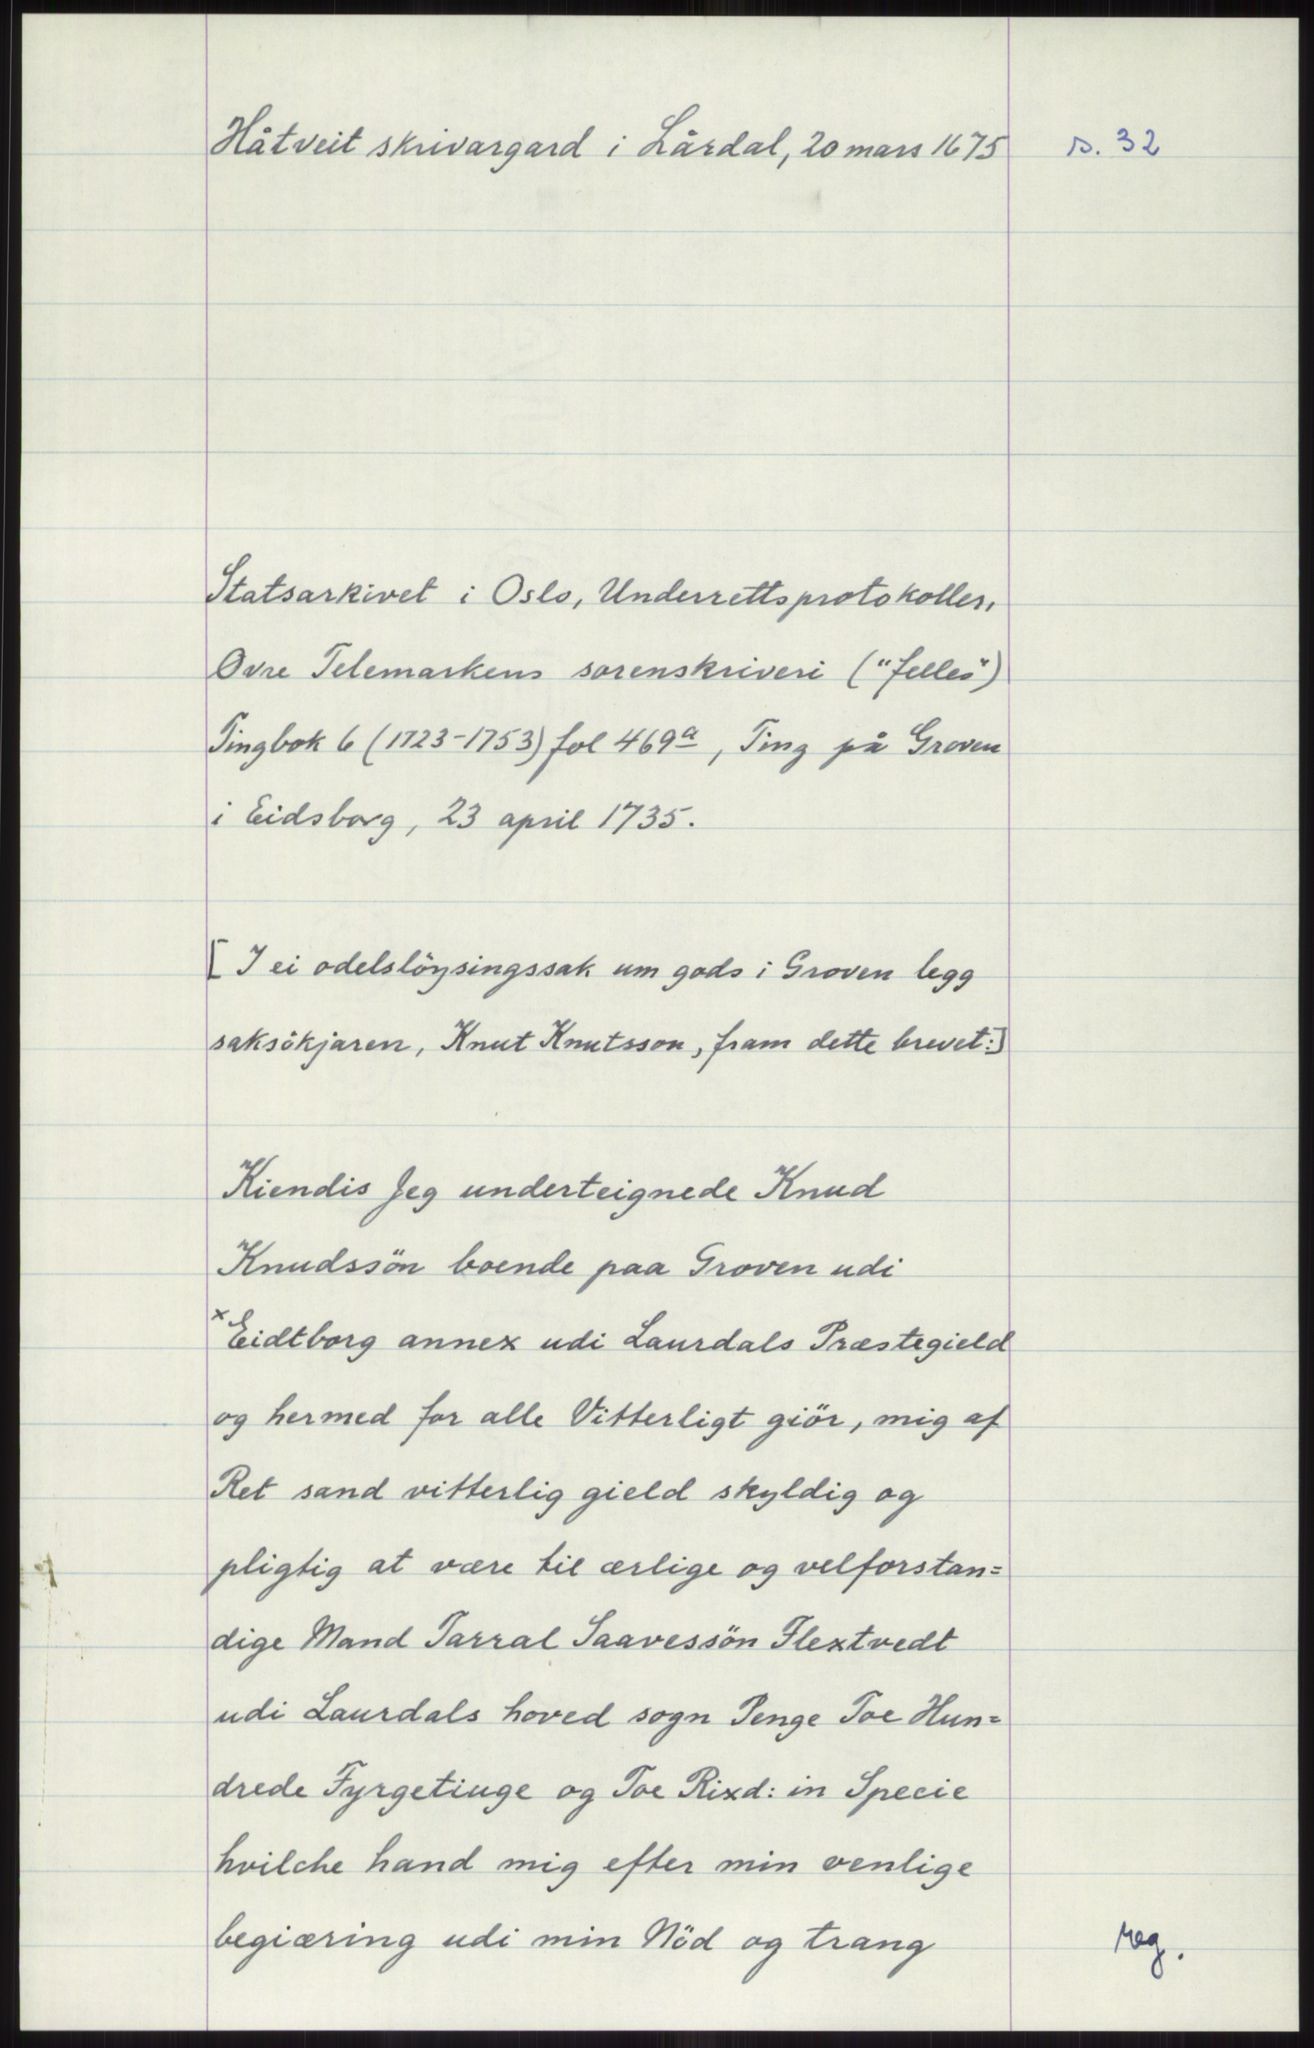 Håtveit skrivargard i Lårdal, 20 mars 1675 s. 32
Statsarkivet i Oslo, Underrettsprotokoller,
Øvre Telemarkens sorenskriveri ("felles")
Tingbok 6 (1723-1753) fol 469a, Ting på Groven
i Eidsborg, 23 april 1735.
[I ei odelslöysingssak um gods i Groven legg
saksökjaren, Knut Knutsson, fram dette brevet:]
Kiendis Jeg underteignede Knud
Knudssön boende paa Groven udi
xEidtborg annex udi Laurdals Præstegield
og hermed for alle Vitterligt giör, mig af
Ret sand vitterlig gield skyldig og
pligtig at være til ærlige og velforstan=
dige Mand Tarral Saavessön Flextvedt
udi Laurdals hoved sogn Penge Toe Hun=
drede Fyrgetiuge og Toe Rixd: in Specie
hvilche hand mig efter min venlige
begiæring udi min Nöd og trang reg.